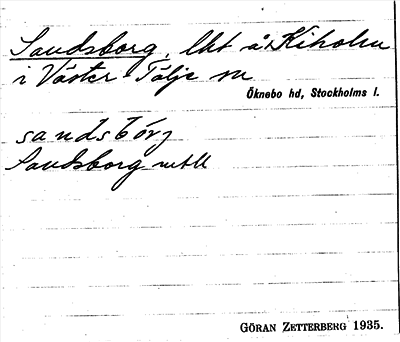 Sandsborg, lht å Kiholm
i Väster-Tälje sn
Öknebo hd, Stockholms l.
sandsbórj
Sandsborg
GÖRAN ZETTERBERG 1935.